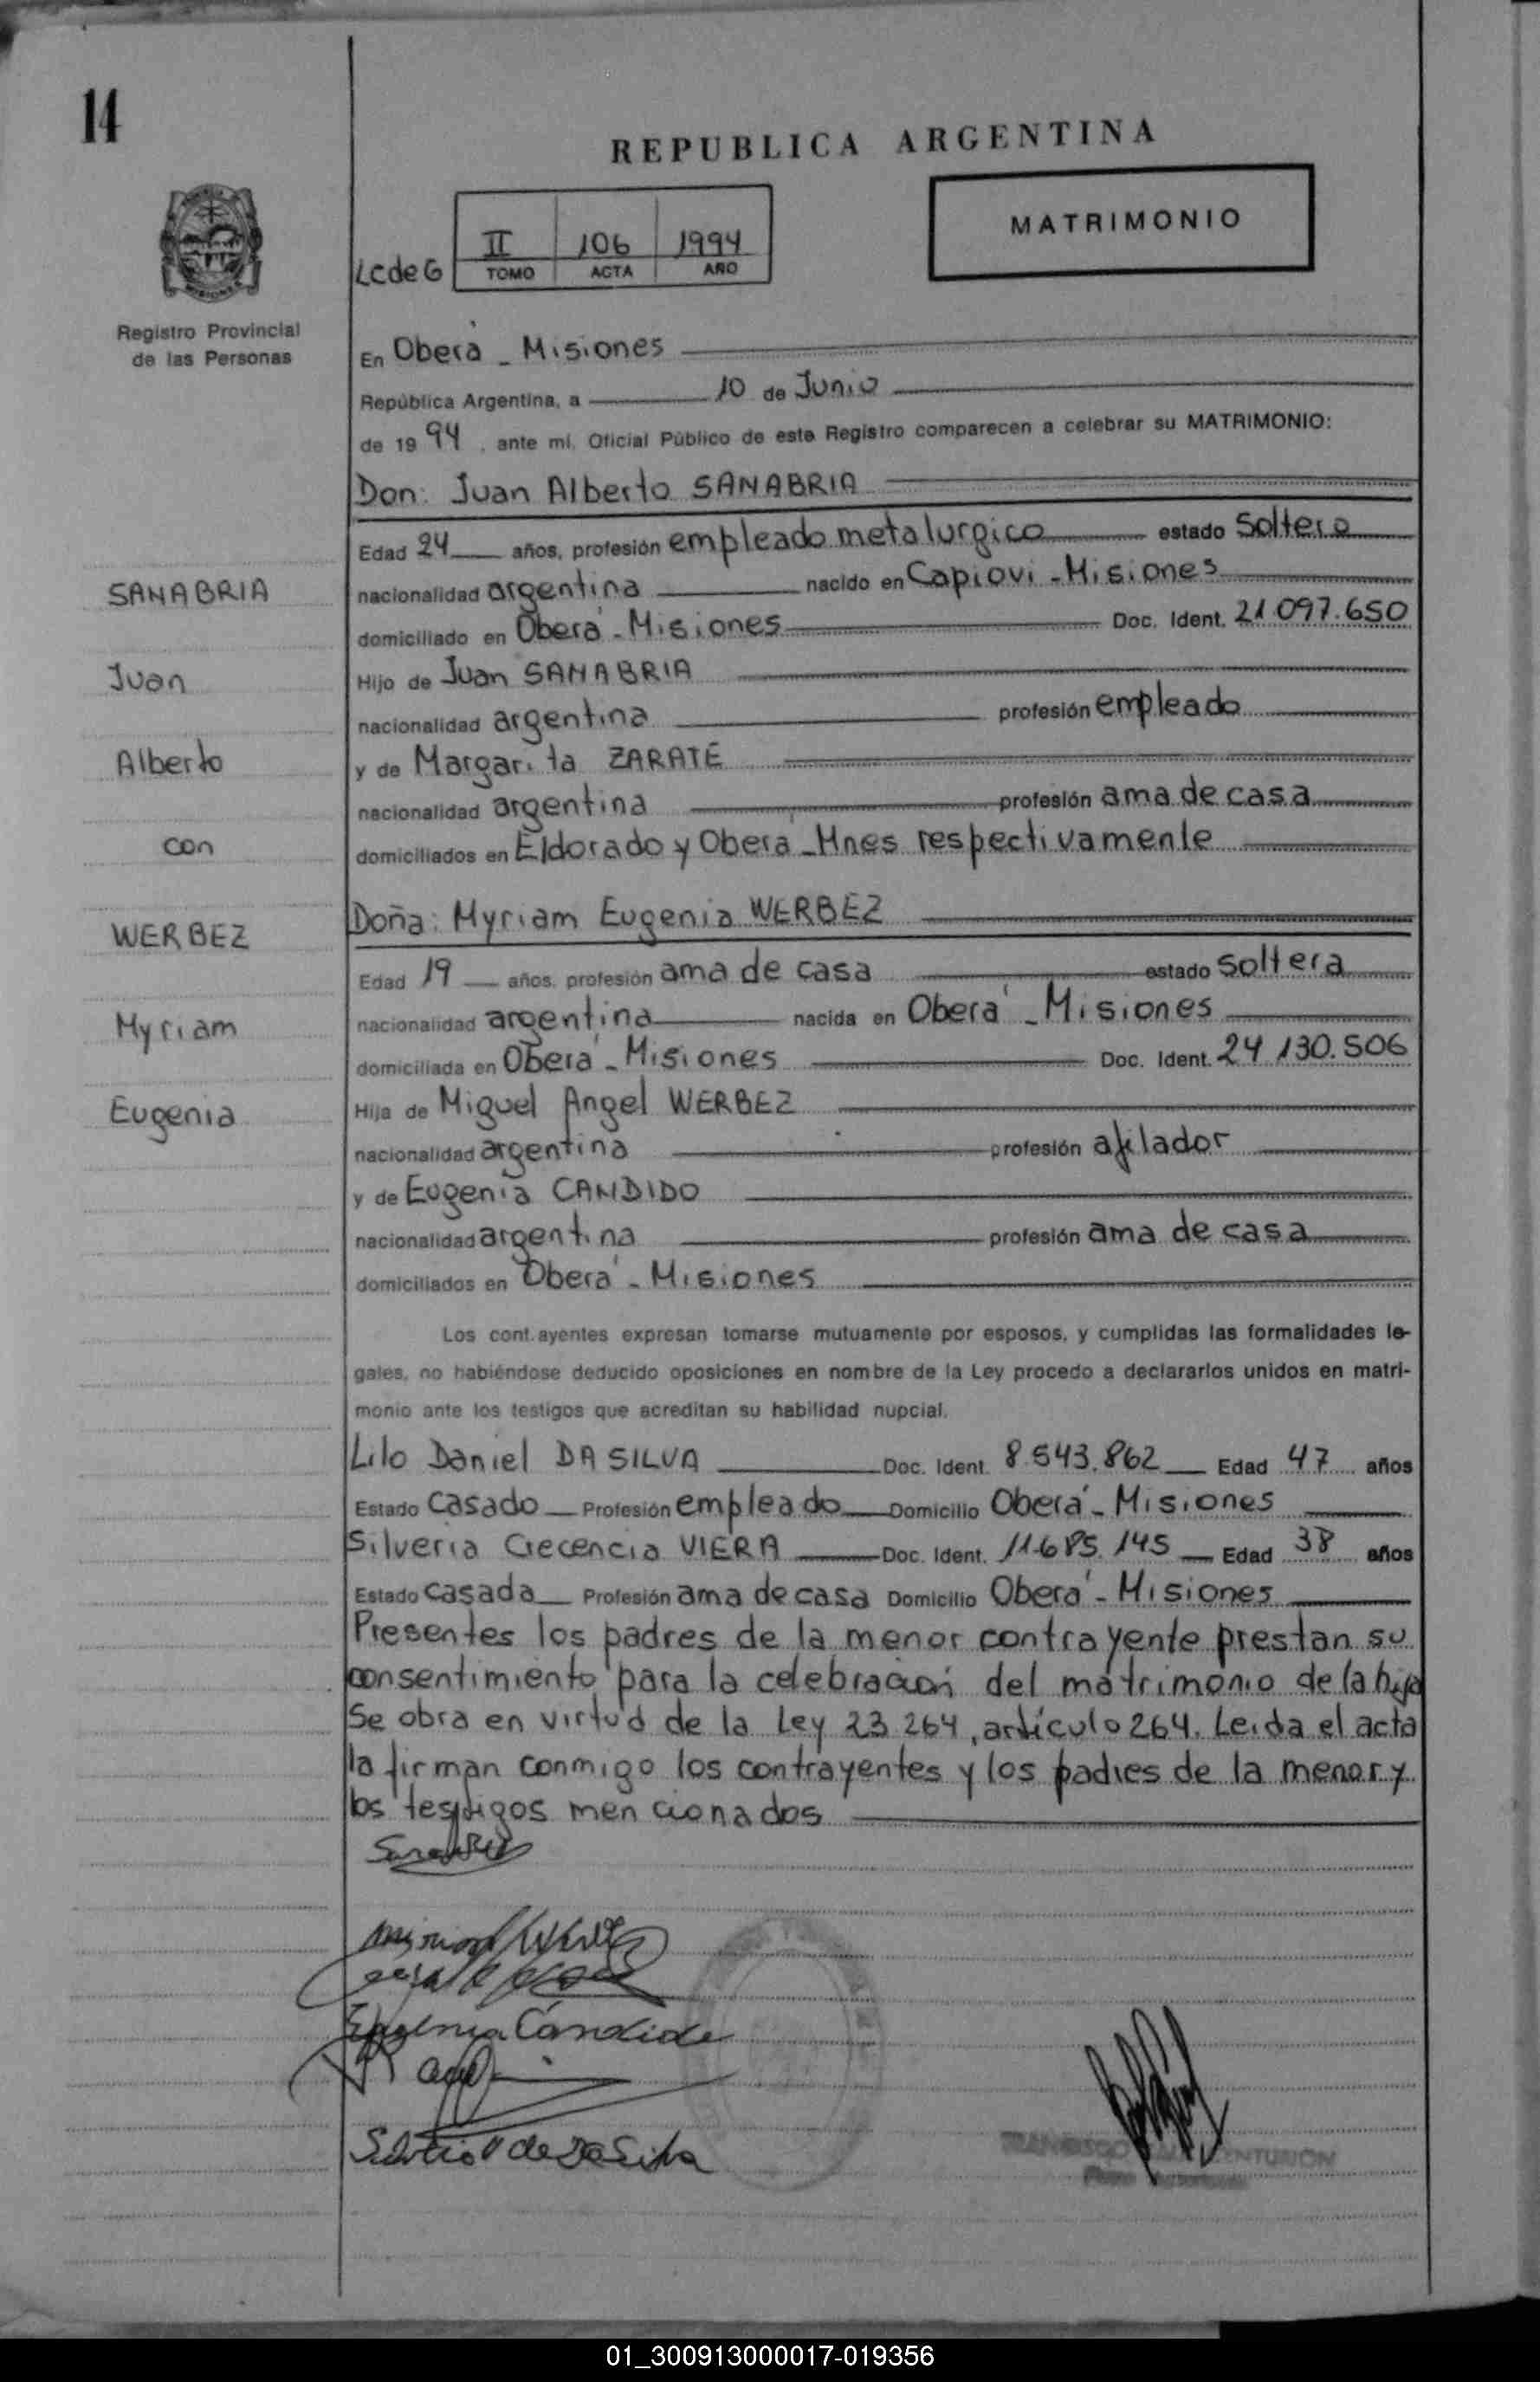 14
REPUBLICA ARGENTINA
MATRIMONIO
LcdeG
II 106 1994
TOMO ACTA AÑO
MISIONES
Registro Provincial
de las Personas
En Oberá - Misiones
República Argentina, a 10 de Junio
de 1994, ante mí, Oficial Público de este Registro comparecen a celebrar su MATRIMONIO:
Don: Juan Alberto SANABRIA
Edad 24 años, profesión empleado metalurgico estado soltero
nacionalidad argentina nacido en Capiovi - Misiones
domiciliado en Oberá - Misiones Doc. Ident. 21.097.650
Hijo de Juan SANABRIA
nacionalidad argentina profesión empleado
y de Margarita ZARATE
nacionalidad argentina profesión ama de casa
domiciliados en Eldorado y Obera - Mnes respectivamente
Doña: Myriam Eugenia WERBEZ
Edad 19 años, profesión ama de casa estado soltera
nacionalidad argentina nacida en Oberá - Misiones
domiciliada en Oberá - Misiones Doc. Ident. 24.130.506
Hija de Miguel Angel WERBEZ
nacionalidad argentina profesión afilador
y de Eugenia CANDIDO
nacionalidad argentina profesión ama de casa
domiciliados en Oberá - Misiones
SANABRIA
Juan
Alberto
con
WERBEZ
Myriam
Eugenia
Los cont.ayentes expresan tomarse mutuamente por esposos, y cumplidas las formalidades le-
gales, no habiéndose deducido oposiciones en nombre de la Ley procedo a declararlos unidos en matri-
monio ante los testigos que acreditan su habilidad nupcial.
Lilo Daniel DA SILVA Doc. Ident. 8.543.862 Edad 47 años
Estado casado Profesión empleado Domicilio Oberá - Misiones
Silveria Crecencia VIERA Doc. Ident. 11.685.145 Edad 38 años
Estado casada Profesión ama de casa Domicilio Oberá - Misiones
Presentes los padres de la menor contrayente prestan su
consentimiento para la celebración del matrimonio de la hija
Se obra en virtud de la Ley 23.264, artículo 264. Leida el acta
la firman conmigo los contrayentes y los padres de la menor y
los testigos mencionados
Eugenia Candido
de Da Silva
CENTURION
01_300913000017-019356